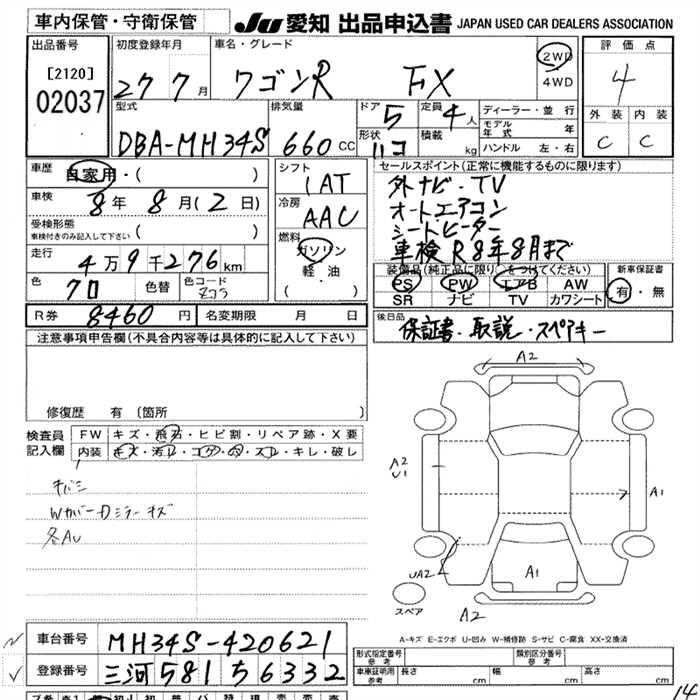 車内保管・守衛保管
JU 愛知 出品申込書 JAPAN USED CAR DEALERS ASSOCIATION
出品番号 初度登録年月 車名・グレード 評価点
[2120] 27 7月 ワゴンR FX 2WD 4
02037 4WD
型式 排気量 ドア 定員 ディーラー・並行 外装 内装
DBA-MH34S 660cc 5 4人 モデル年式 年 C C
形状 積載 ハンドル 左・右
ハコ kg
車歴 自家用・( ) シフト セールスポイント(正常に機能するものに限ります)
1AT 外ナビ・TV
車検 8年8月(2日) 冷房 オートエアコン
受検形態 AAC シートヒーター
車検付きのみ記入して下さい ( ) 燃料 車検R8年8月まで
走行 4万9千276km ガソリン
軽・油
( )
装備品(純正品に限り○をつけてください) 新車保証書
色 クロ 色替 色コード PS PW エアB AW 有・無
SR ナビ TV カワシート
R券 8460円 名変期限 月 日 後日品
保証書・取説・スペアキー
注意事項申告欄(不具合内容等は具体的に記入して下さい)
修復歴 有 〔箇所 〕
検査員 FW キズ・飛石・ヒビ割・リペア跡・X要
記入欄 内装 キズ・汚レ・コゲ・穴・スレ・キレ・破レ
Wカバー Dミラーキズ
各AU
A2
A2
U1
A1
UA2
A1
スペア
A2
A-キズ E-エクボ U-凹み W-補修跡 S-サビ C-腐食 XX-交換済
車台番号 MH34S-420621
登録番号 三河581ち6332
形式指定番号 参考 類別区分番号 参考
車車証明用 参考 長さ cm 幅 cm 高さ cm
14